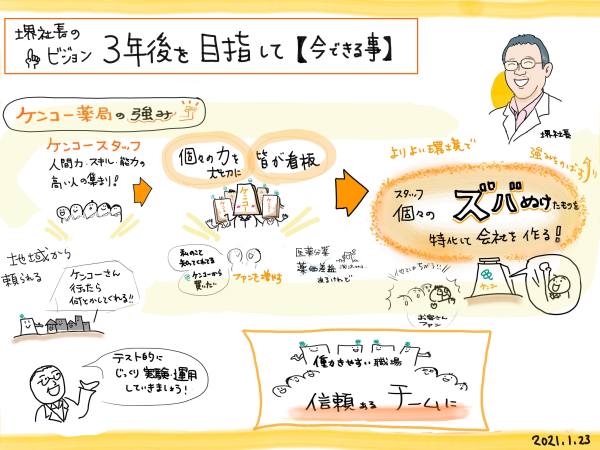 堺社長の
ビジョン
3年後を目指して【今できる事】
堺社長
ケンコー薬局の強み
ケンコースタッフ
人間力・スキル・能力の
高い人の集まり!
個々の力を
大切に
皆が看板
よりよい環境で
強みをのばす
スタッフ
個々の
ズバぬけたものを
特化して会社を作る!
地域から
頼られる
ケンコーさん
行ったら
何とかしてくれる!!
私のこと
知ってくれてる
ケンコーから
買いたい
ファンを増やす
医薬分業
薬価差益
お客さん
ファン
ケンコー
テスト的に
じっくり実験・運用
していきましょう!
働きやすい職場
信頼あるチームに
2021.1.23